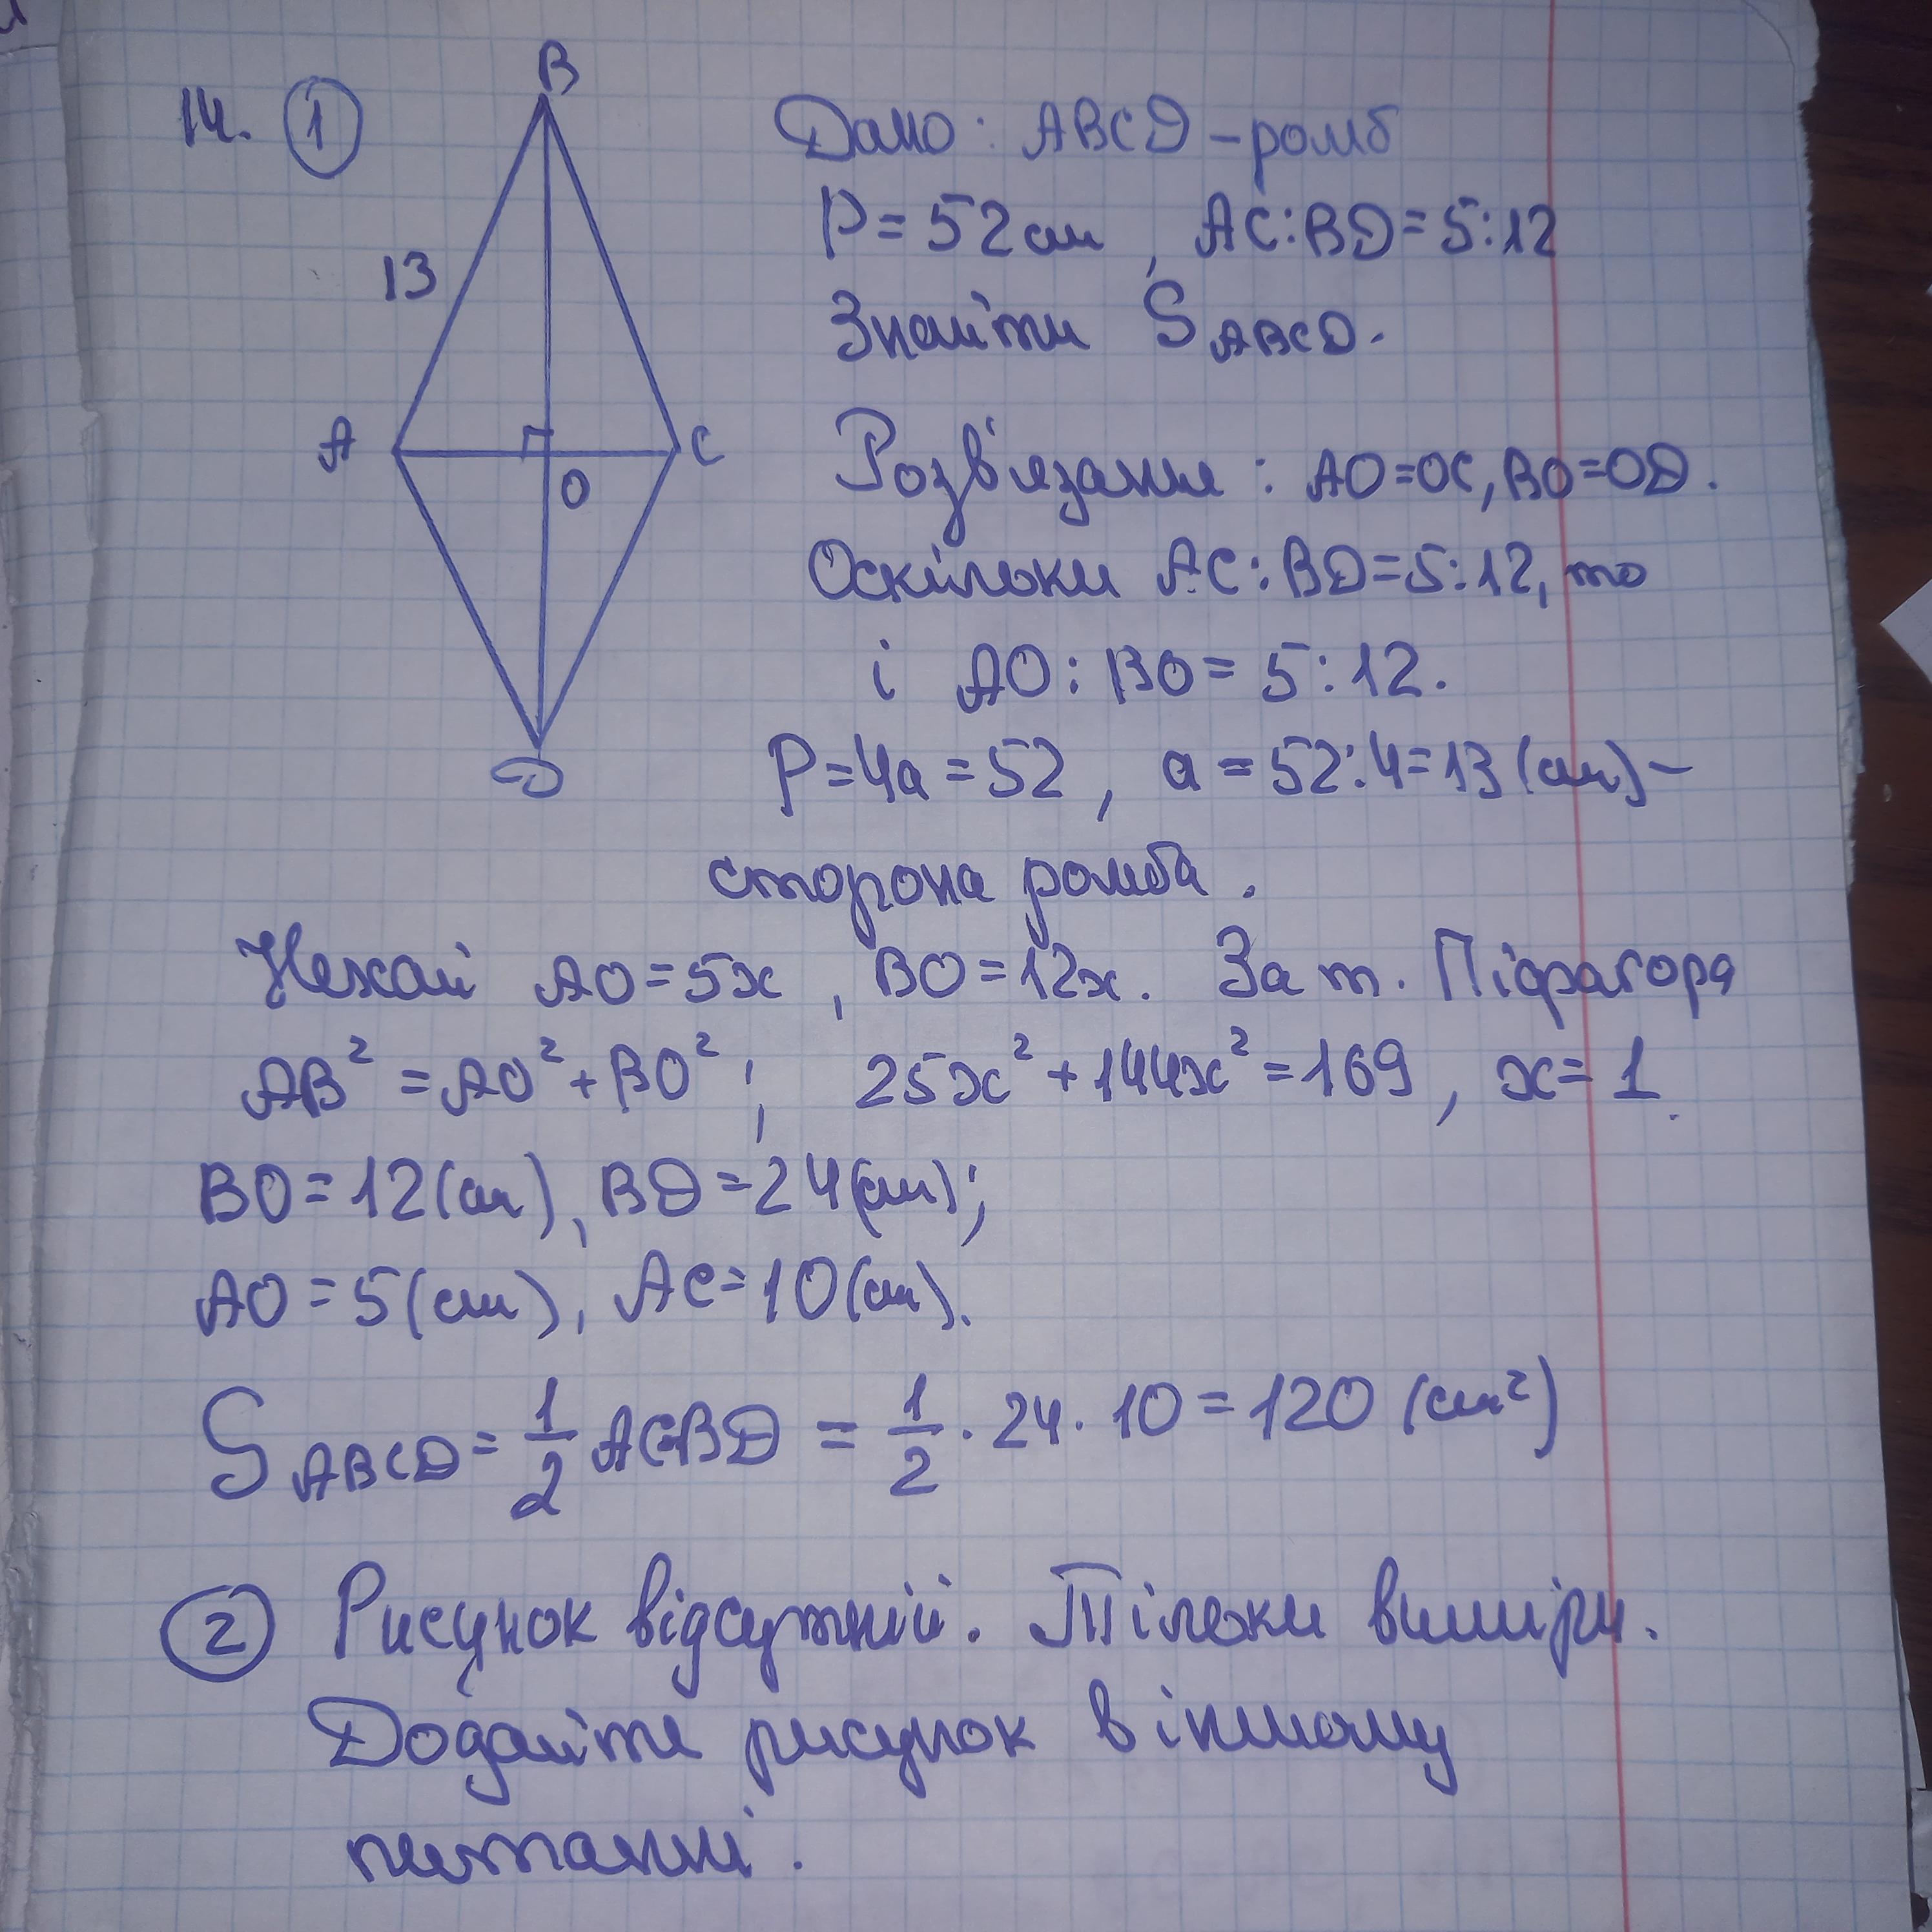 14. 1
B
13
A
C
O
D
Дано: ABCD – ромб
P = 52 см, AC:BD = 5:12
Знайти S ABCD.
Розв'язання: AO=OC, BO=OD.
Оскільки AC:BD=5:12, то
і AO:BO = 5:12.
P=4a=52, a=52:4=13 (см) –
сторона ромба.
Нехай AO=5x, BO=12x. За т. Піфагора
AB²=AO²+BO²; 25x²+144x²=169, x=1.
BO=12(см), BD=24(см);
AO=5(см), AC=10(см).
S ABCD = 1/2 AC·BD = 1/2 · 24 · 10 = 120 (см²)
2 Рисунок відсутній. Тільки виміри.
Додайте рисунок в іншому
питанні.